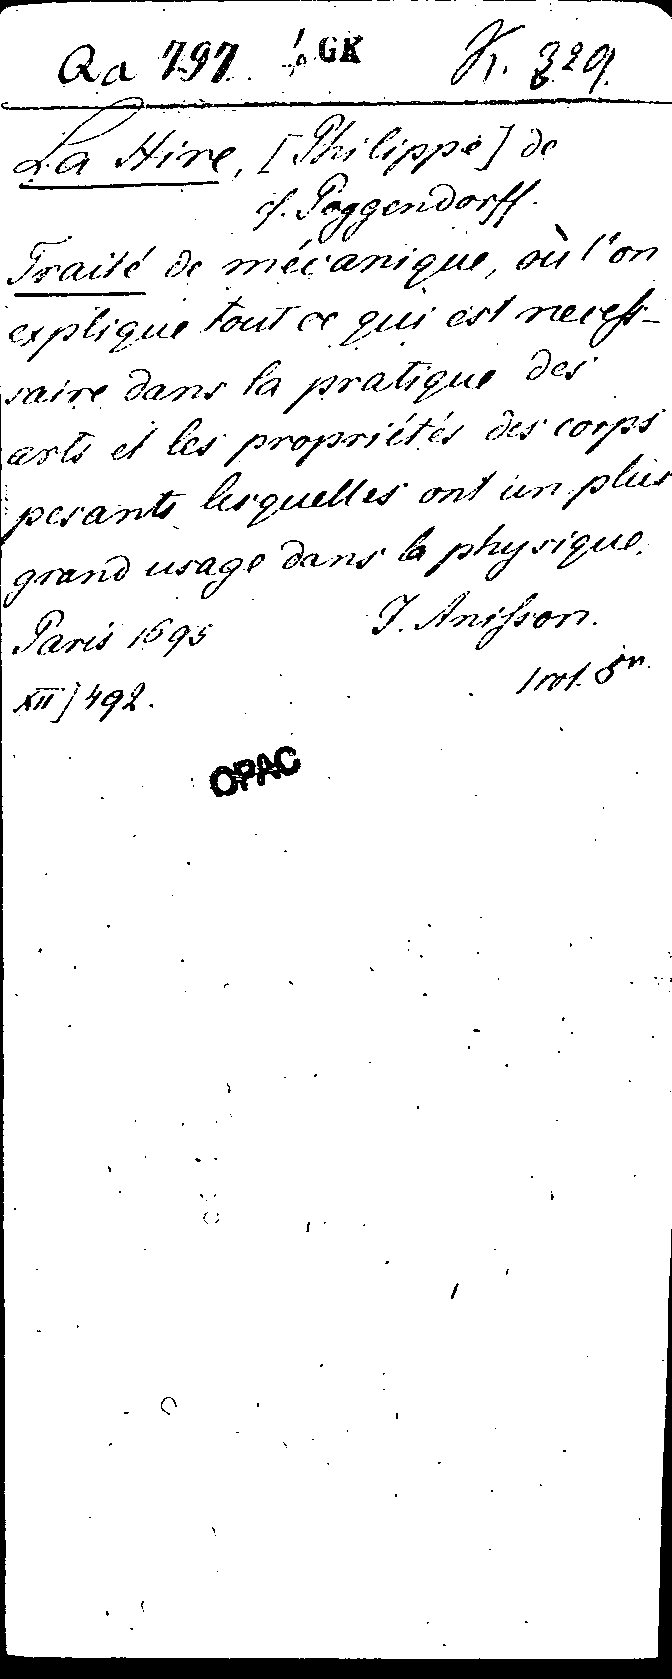 Qa 797 GK K. 329.
La Hire, [Philippe] de
cf. Poggendorff.
Traité de mécanique, où l'on
explique tout ce qui est necess-
saire dans la pratique des
arts et les propriétés des corps
pesants lesquelles ont un plus
grand usage dans la physique.
Paris 1695 J. Anisson.
XII] 492. 1 vol. 8°.
OPAC